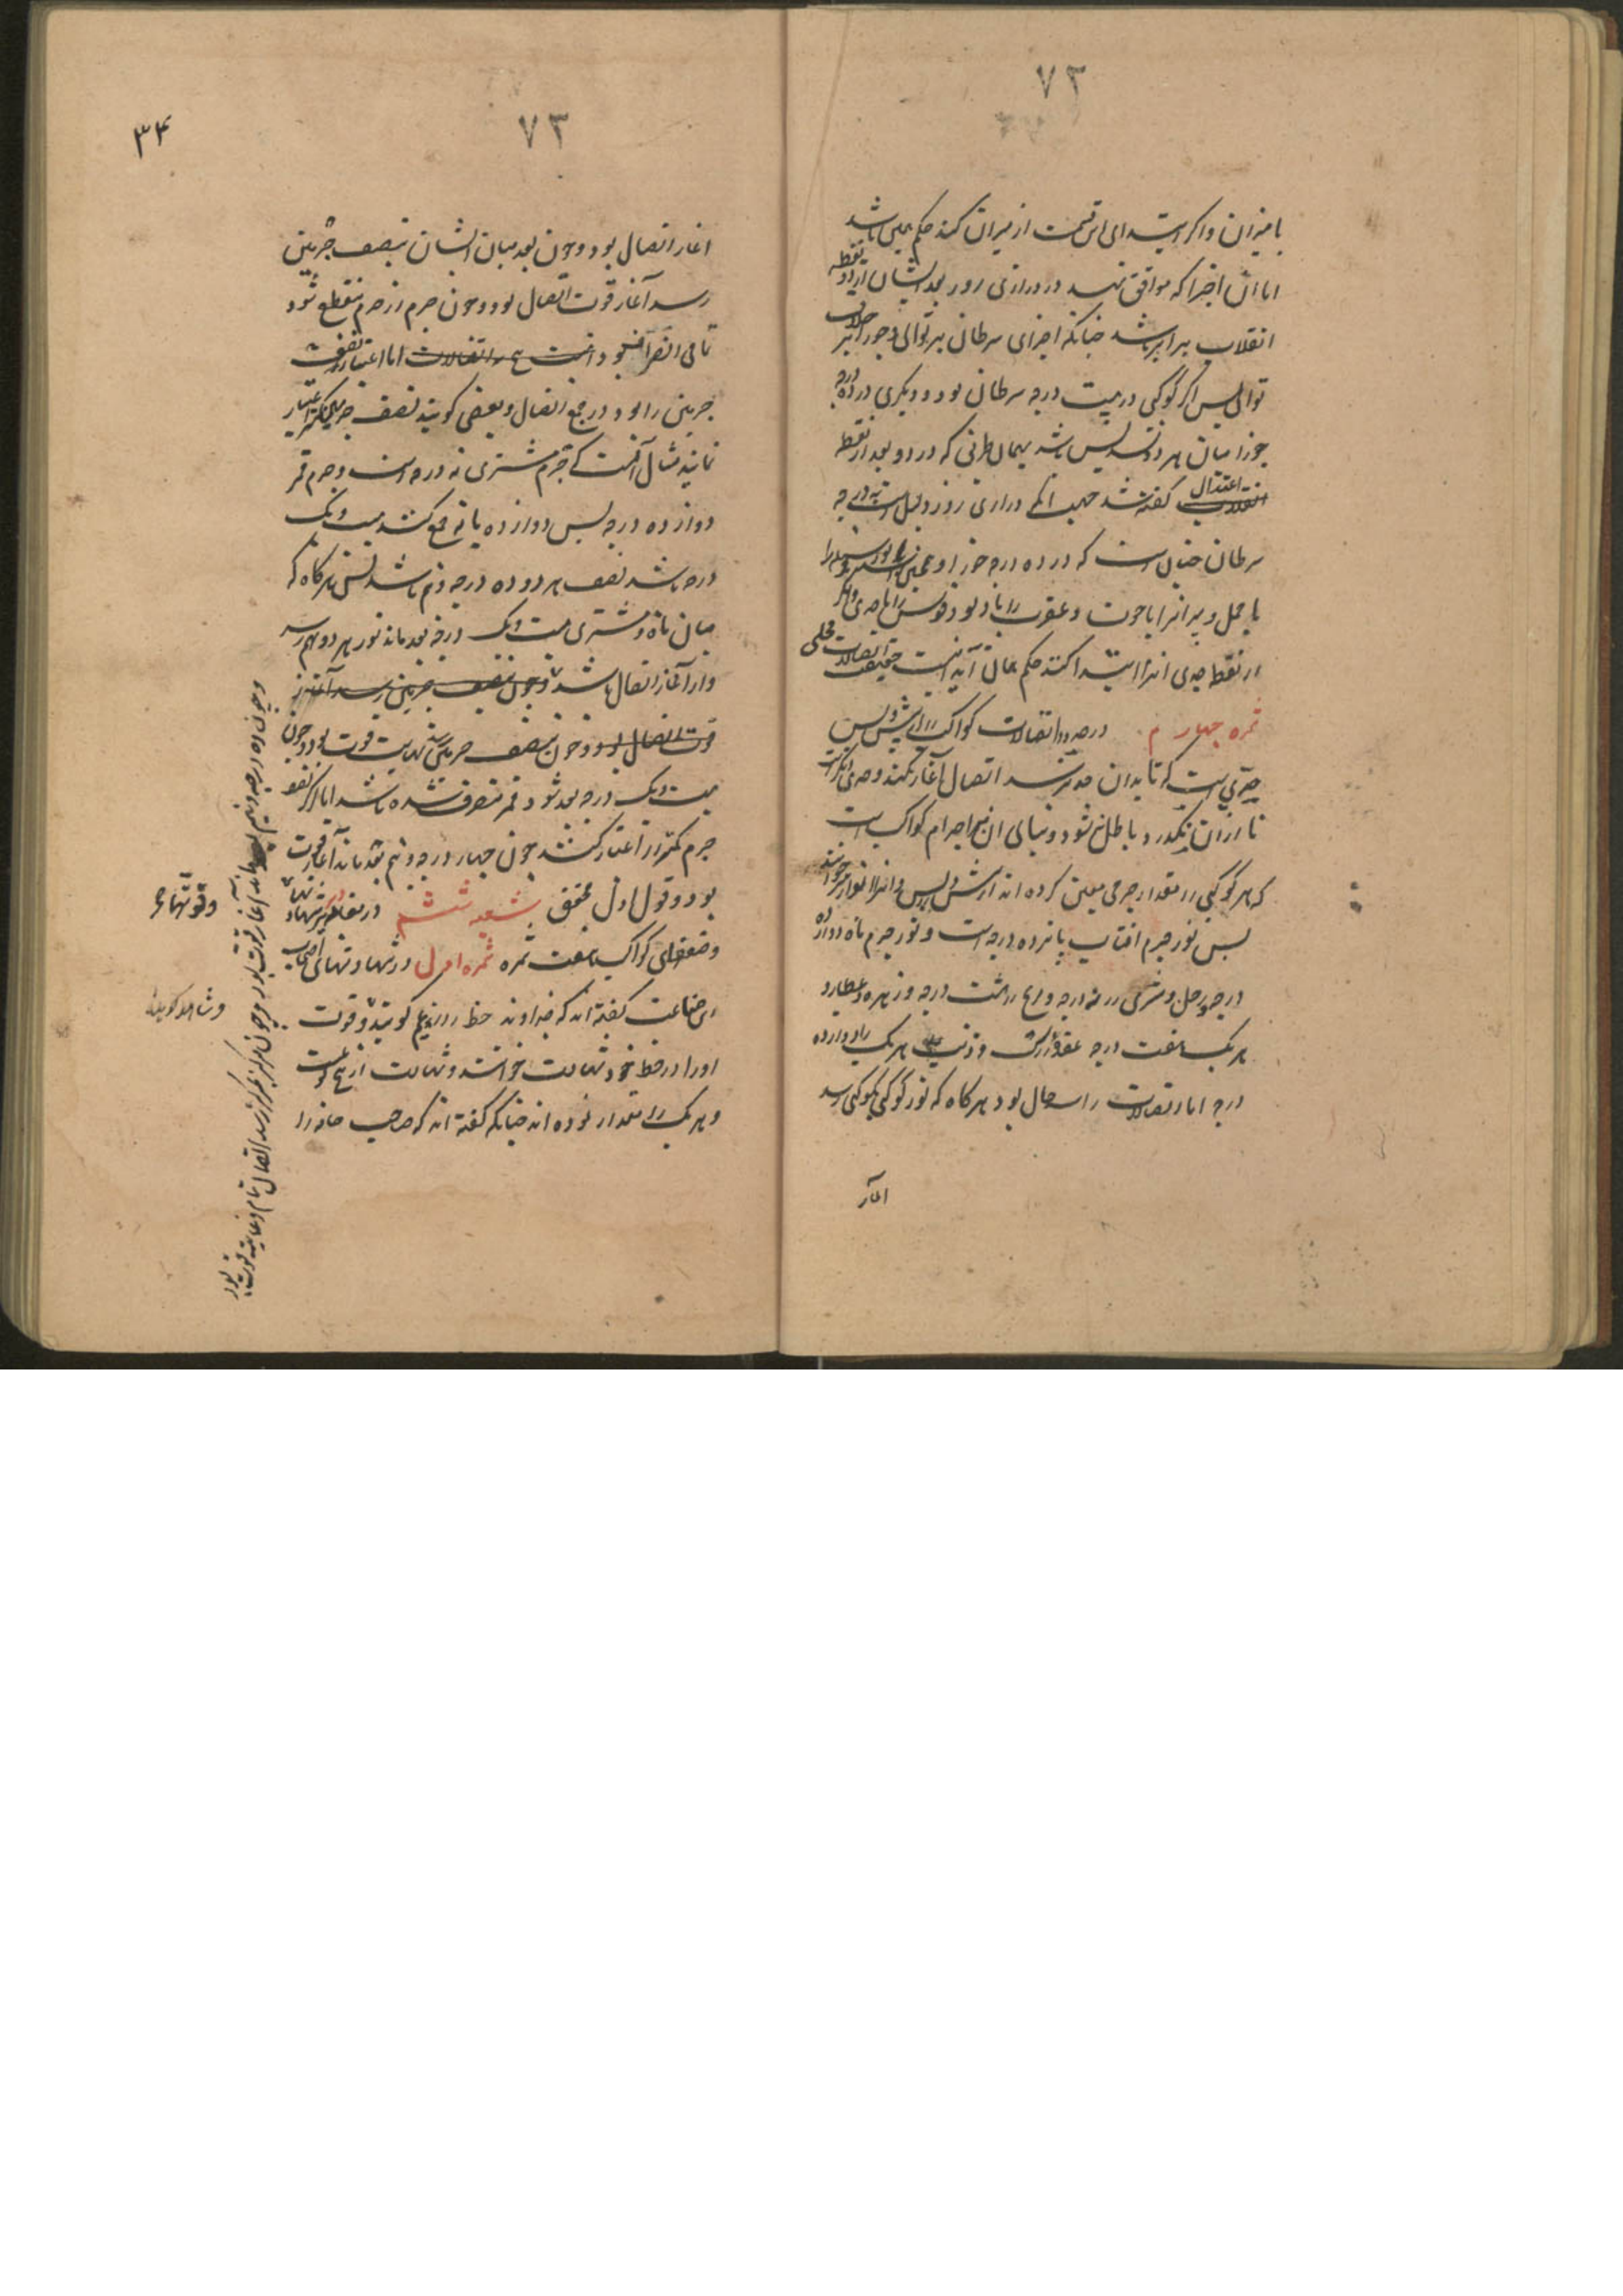 ۷۳
با میزان و اگر ابتدای این قسمت از میزان کنند حکم همین باشد
اما آن اجزا که موافق‌اند در درازی روز بعد ایشان از دو نقطه
انقلاب برابر باشد چنانکه اجزای سرطان بر توالی و جوزا بر خلاف
توالی پس اگر کوکبی در بیست درجه سرطان بود و دیگری در ده درجه
جوزا میان هر دو تسدیس باشد بهمان طریق که در دو بعد از نقطه
اعتدال گفته شد جهت آنکه درازی روز در بیست درجه
سرطان چنان است که در ده درجه جوزا و همچنین
با حمل و میزان را با حوت و عقرب را با دلو و قوس را با جدی و اگر
از نقطه جدی ابتدا کنند حکم همان آید اینست حقیقت اتصالات محلی
ثمره چهارم در حدود اتصالات کواکب را از پیش و پس
حدیست که تا بدان حد نرسند اتصال آغاز نکنند و حدی دیگرست
تا از آن نگذرد باطل نشود و نشان آن اجرام کواکب است
که هر کوکبی را مقدار جرمی معین کرده‌اند از پیش و پس و آنرا انوار خوانند
پس نور جرم آفتاب پانزده درجه است و نور جرم ماه دوازده
درجه و زحل و مشتری را نه درجه و مریخ را هشت درجه و زهره و عطارد
هر یک هفت درجه عقده راس و ذنب هر یک را دوازده
درجه اما اتصالات را سه حال بود هرگاه که نور کوکبی بکوکبی رسد
آغاز
۷۳
۳۴
آغاز اتصال بود و چون بعد میان ایشان بنصف جرمین
رسد آغاز قوت اتصال بود و چون جرم از جرم منقطع شود
تمامی انصراف بود اینست جمع اتصالات اما اعتبار نصف
جرمین را بود در جمع اتصال و بعضی گویند نصف جرم کمتر اعتبار
نمایند مثال آنست که جرم مشتری نه درجه است و جرم قمر
دوازده درجه پس دوازده با نه جمع کنند بیست و یک
درجه باشد نصف هر دو ده درجه و نیم باشد پس هرگاه که
میان ماه و مشتری بیست و یک درجه بعد ماند نور هر دو بهم رسد
و از آغاز اتصال باشد و چون بنصف جرمین رسد آغاز
قوت اتصال بود و چون بنصف جرمین رسد نهایت قوت بود و چون
بیست و یک درجه بعد شود قمر منصرف شده باشد اما اگر نصف
جرم کمتر را اعتبار کنند چون چهار درجه و نیم بعد ماند آغاز قوت
بود و قول اول محقق شعبه ششم در مقادیر شهادتها
و ضعفهای کواکب هفت ثمره ثمره اول در شهادتهای اصحاب
این صناعت گفته‌اند که خداوند حظ را زعیم گویند و قوت
او را در حظ خود شهادت خوانند و شهادت از پنج گونه است
و هر یک را مقدار نموده‌اند چنانکه گفته‌اند که صاحب خانه را
و قوتهای
و شاهد گویند
و چون ده درجه و نیم بماند آغاز قوت بود و چون مرکز بمرکز رسد اتصال تمام و غایت قوت بود